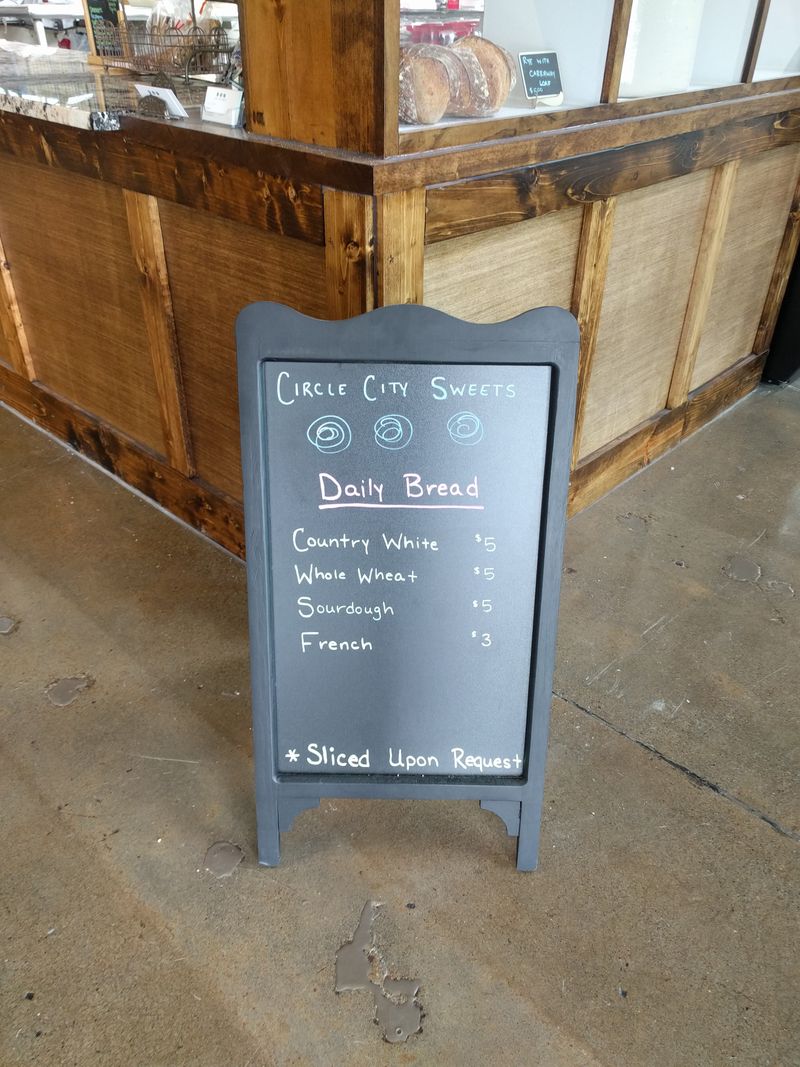 Rye with
Caraway
Loaf
$5.00
Circle City Sweets
Daily Bread
Country White $5
Whole Wheat $5
Sourdough $5
French $3
* Sliced Upon Request